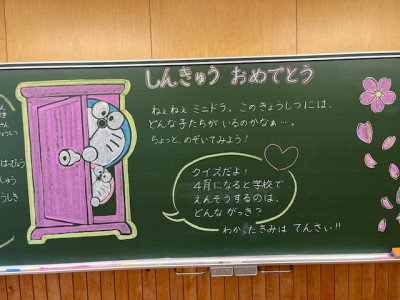 しんきゅう おめでとう
ねぇねぇ ミニドラ。このきょうしつには、
どんな子たちが いるのかなぁ…。
ちょっと、のぞいてみよう!
クイズだよ!
4月になると学校で
えんそうするのは、
どんながっき?
わかったきみは てんさい!!